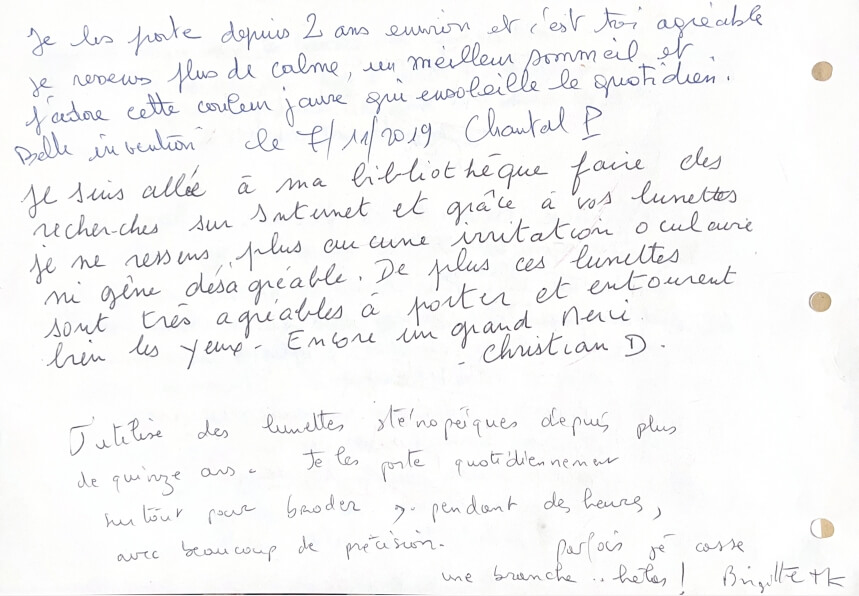 Je les porte depuis 2 ans environ et c'est très agréable
je ressens plus de calme, un meilleur sommeil et
j'adore cette couleur jaune qui ensoleille le quotidien.
Belle invention le 7/11/2019 Chantal P
Je suis allée à ma bibliothèque faire des
recherches sur Internet et grâce à vos lunettes
je ne ressens plus aucune irritation oculaire
ni gêne désagréable. De plus ces lunettes
sont très agréables à porter et entourent
bien les yeux - Encore un grand Merci.
- Christian D.
J'utilise des lunettes sténopéiques depuis plus
de quinze ans. Je les porte quotidiennement
surtout pour broder pendant des heures,
avec beaucoup de précision. parfois je casse
une branche .. hélas ! Brigitte